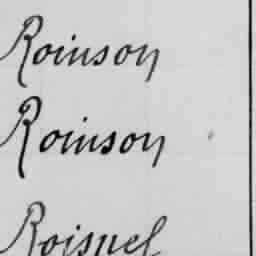 Roinson
Roinson
Roisnel